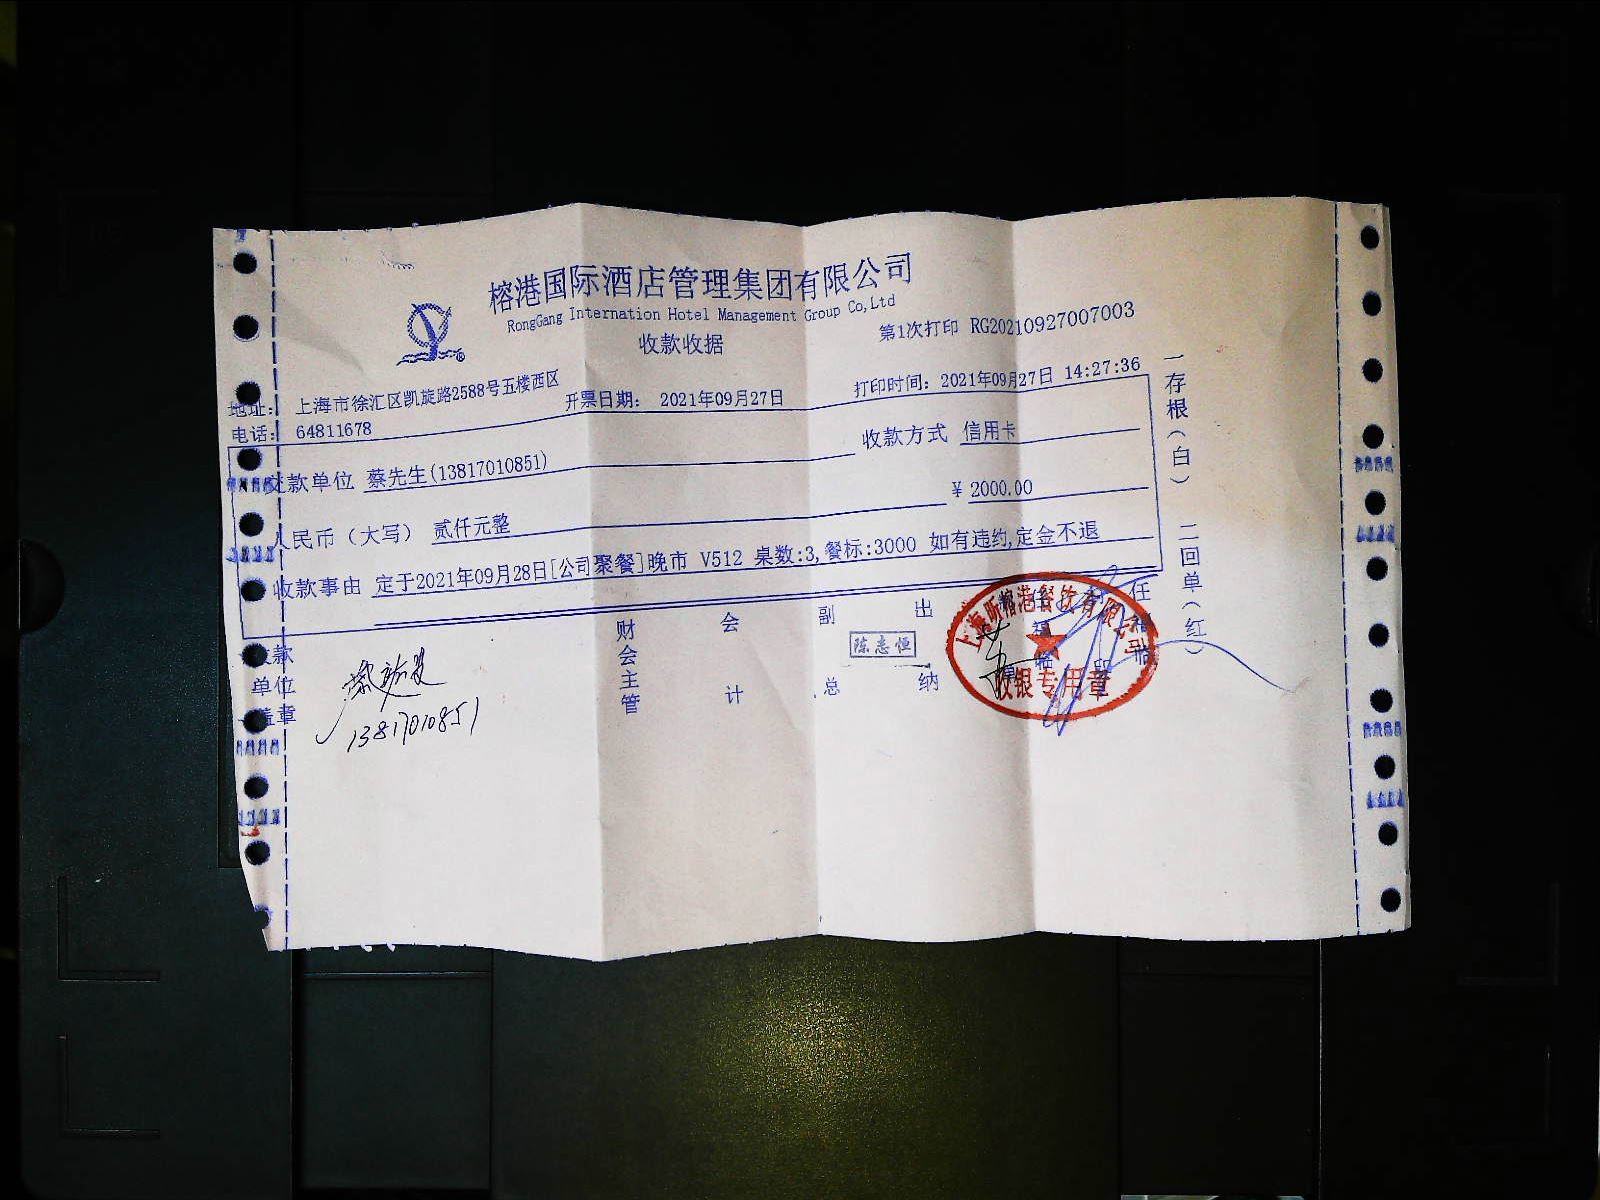 榕港国际酒店管理集团有限公司
RongGang Internation Hotel Management Group Co,Ltd
收款收据
第1次打印 RG20210927007003
地址： 上海市徐汇区凯旋路2588号五楼西区
开票日期： 2021年09月27日
打印时间：2021年09月27日 14:27:36
电话： 64811678
交款单位 蔡先生(13817010851)
收款方式 信用卡
人民币（大写） 贰仟元整
¥ 2000.00
收款事由 定于2021年09月28日[公司聚餐]晚市 V512 桌数:3,餐标:3000 如有违约,定金不退
一存根（白） 二回单（红）
收款单位盖章
财会主管
会计
副总
出纳
陈志恒
收银专用章
13817010851